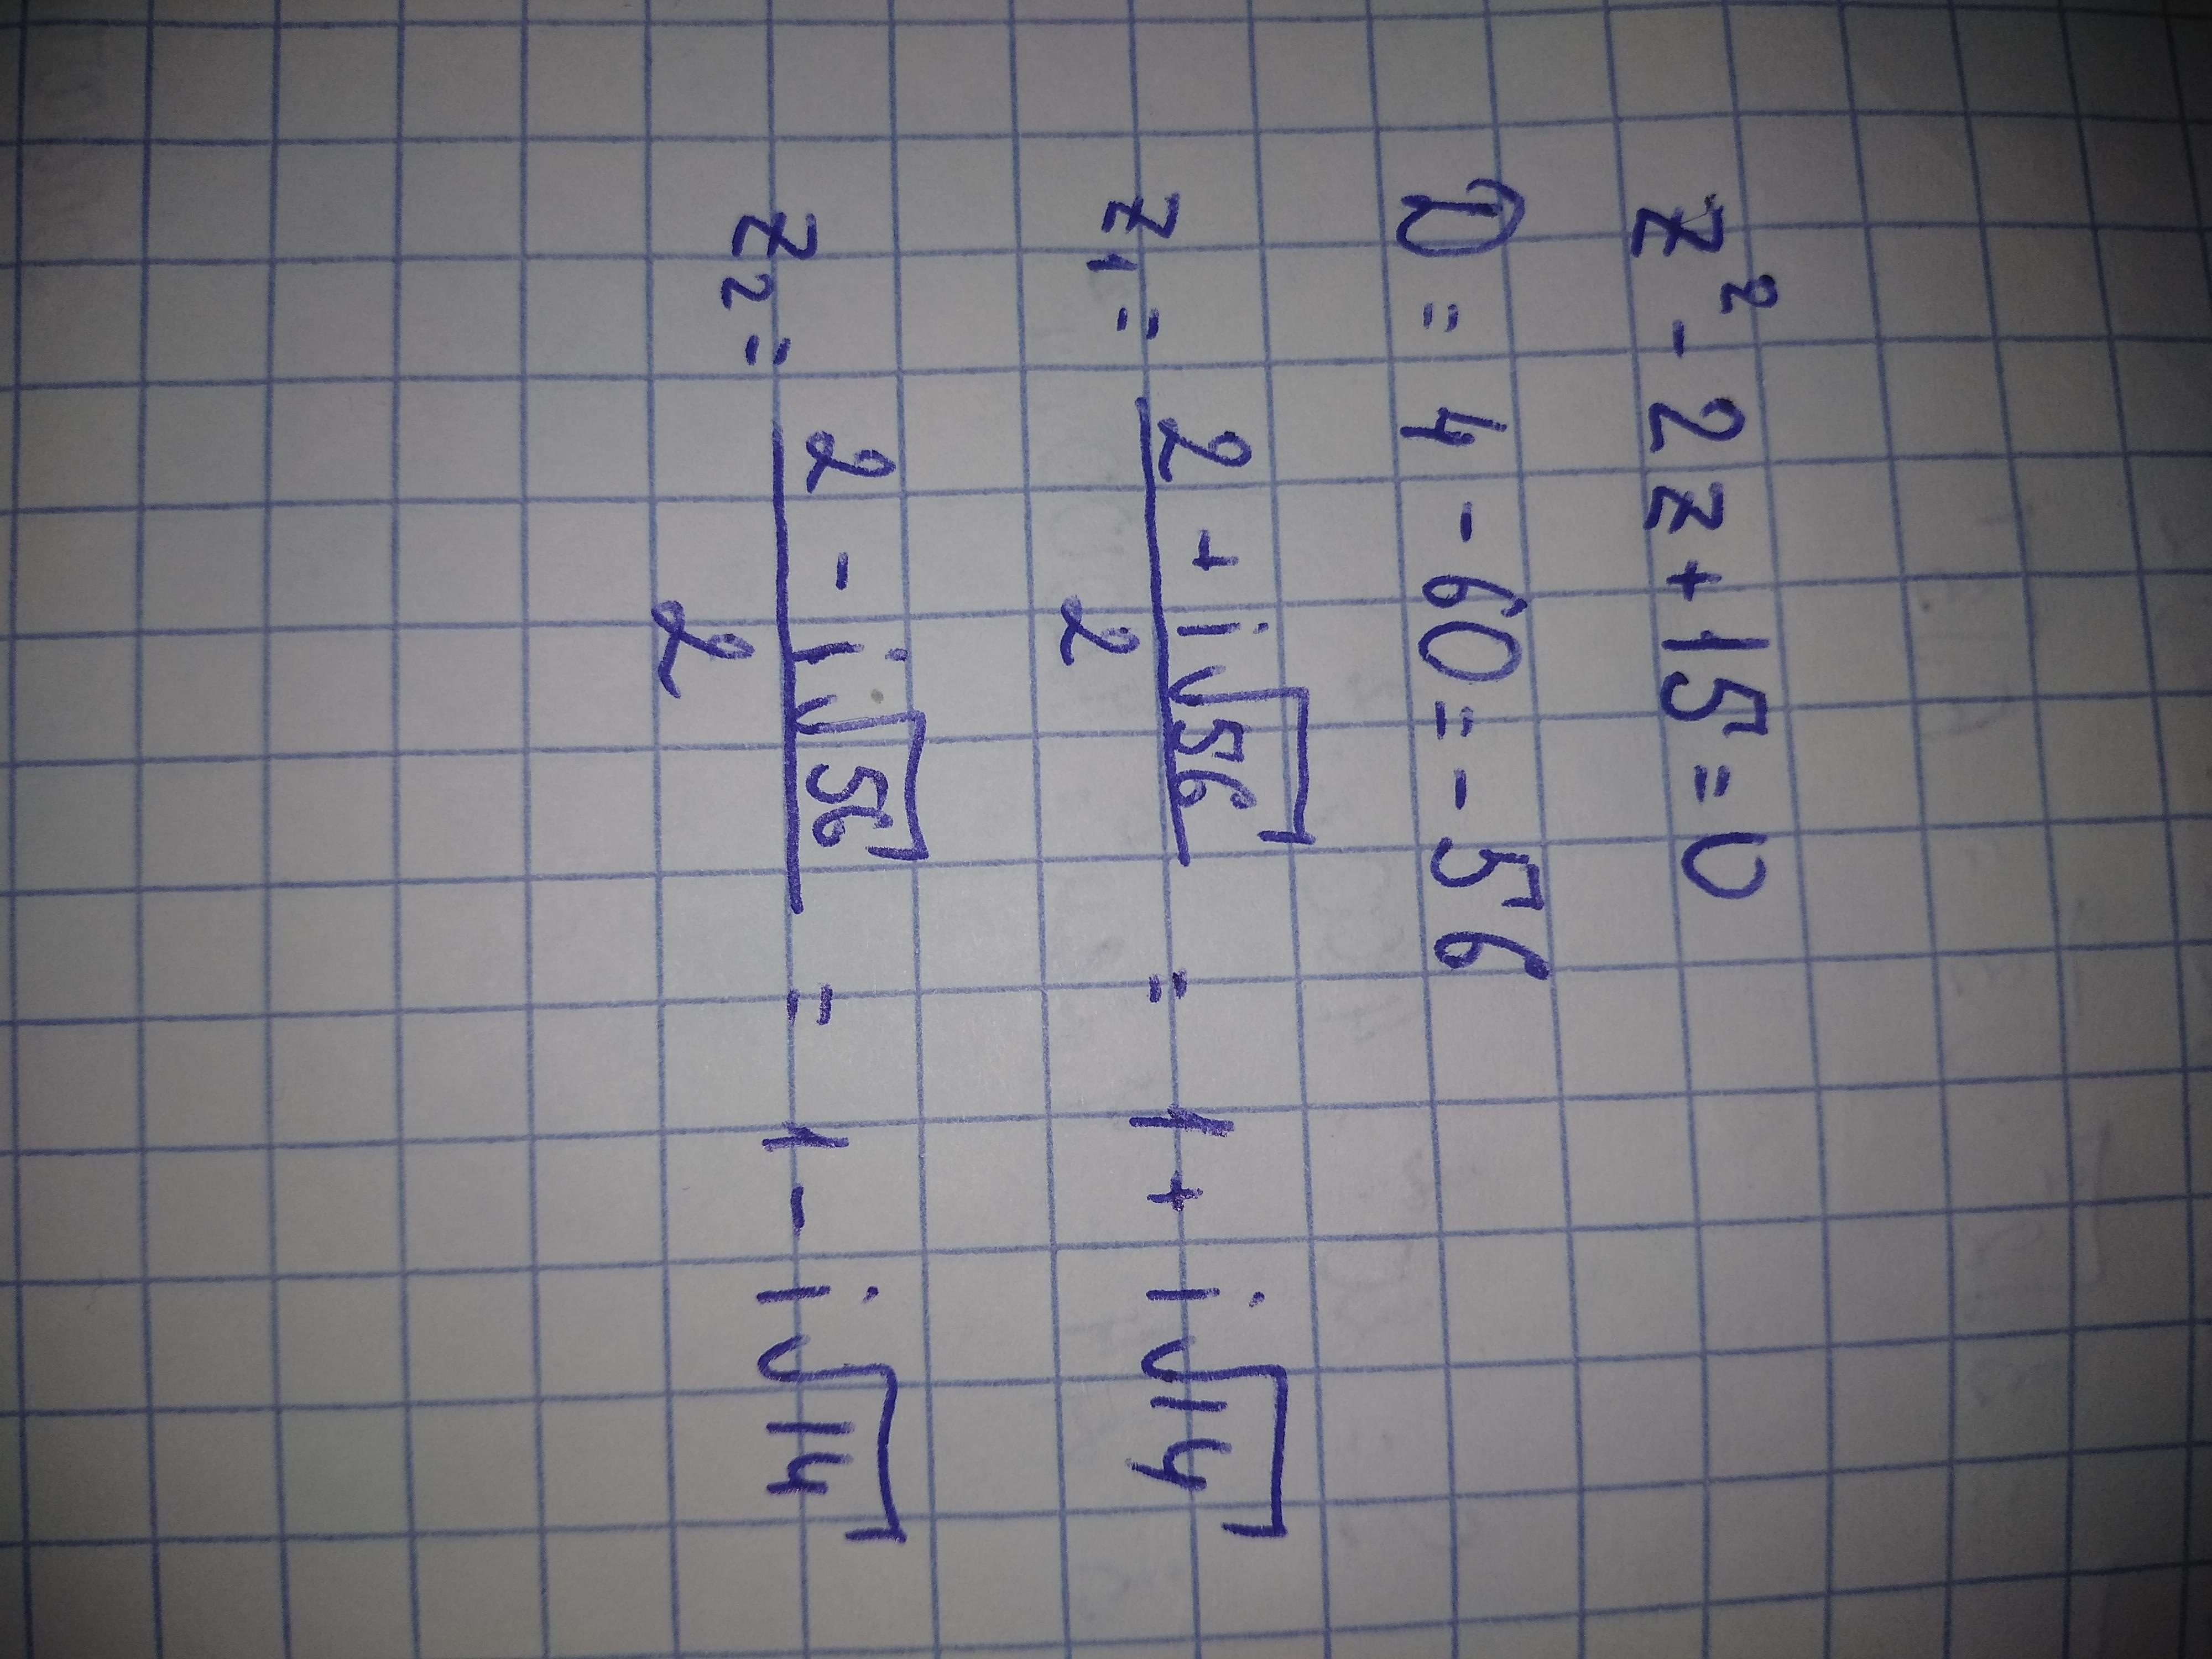 z² - 2z + 15 = 0
D = 4 - 60 = - 56
z₁ = (2 + i√56)/2 = 1 + i√14
z₂ = (2 - i√56)/2 = 1 - i√14